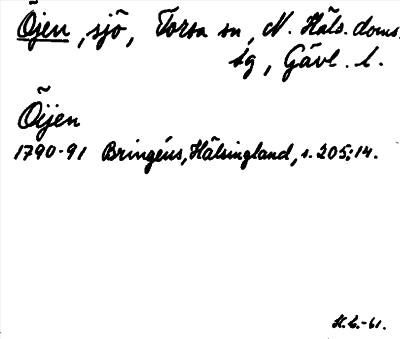 Öjen, sjö, Torsa sn, N. Häls. doms.
sg, Gävl. l.
Öijen
1790-91 Bringéus, Hälsingland, s. 205:14.
H.L.-61.